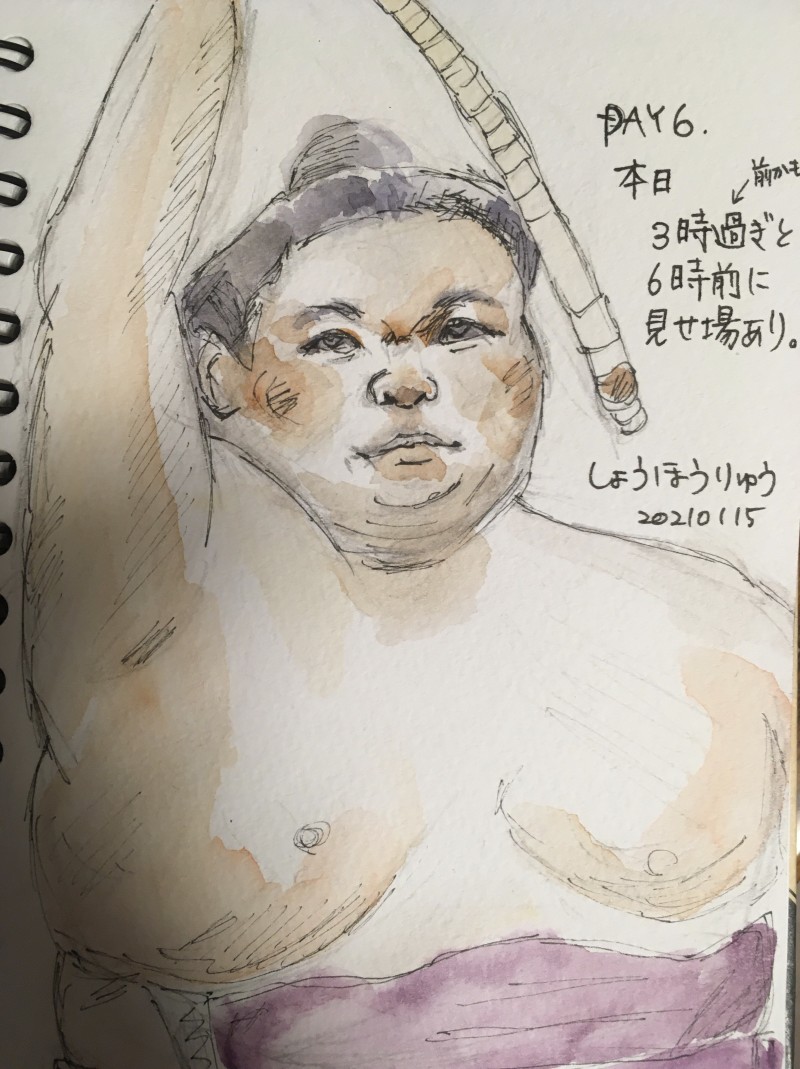 DAY 6.
本日
前かも
3時過ぎと
6時前に
見せ場あり。
しょうほうりゅう
20210115